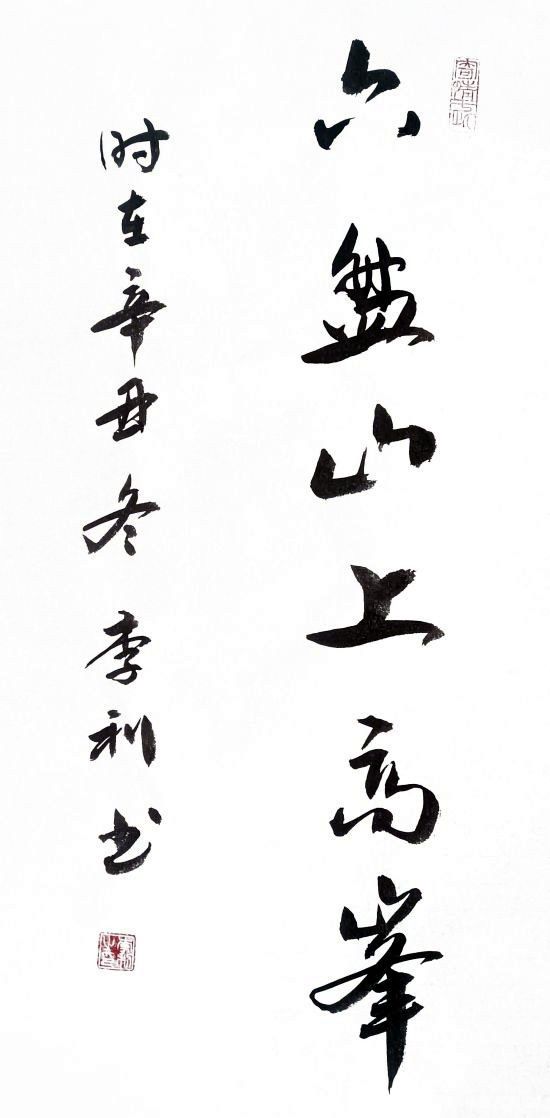 六盘山上高峰
时在辛丑冬李利书